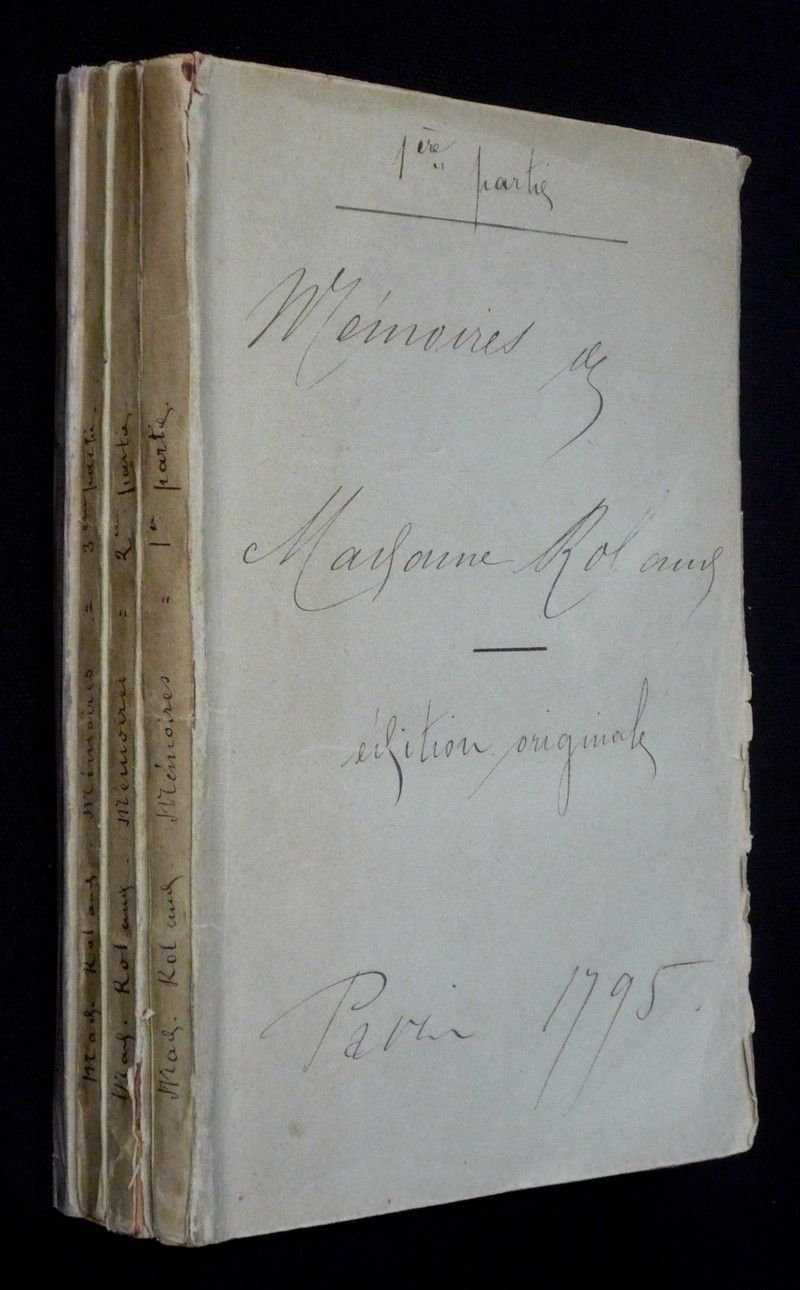 1ère partie
Mémoires de
Madame Roland
édition originale
Paris 1795.
Mad. Roland. Mémoires = 3em partie.
Mad. Roland. Mémoires = 2em partie.
Mad. Roland Mémoires = 1er partie.